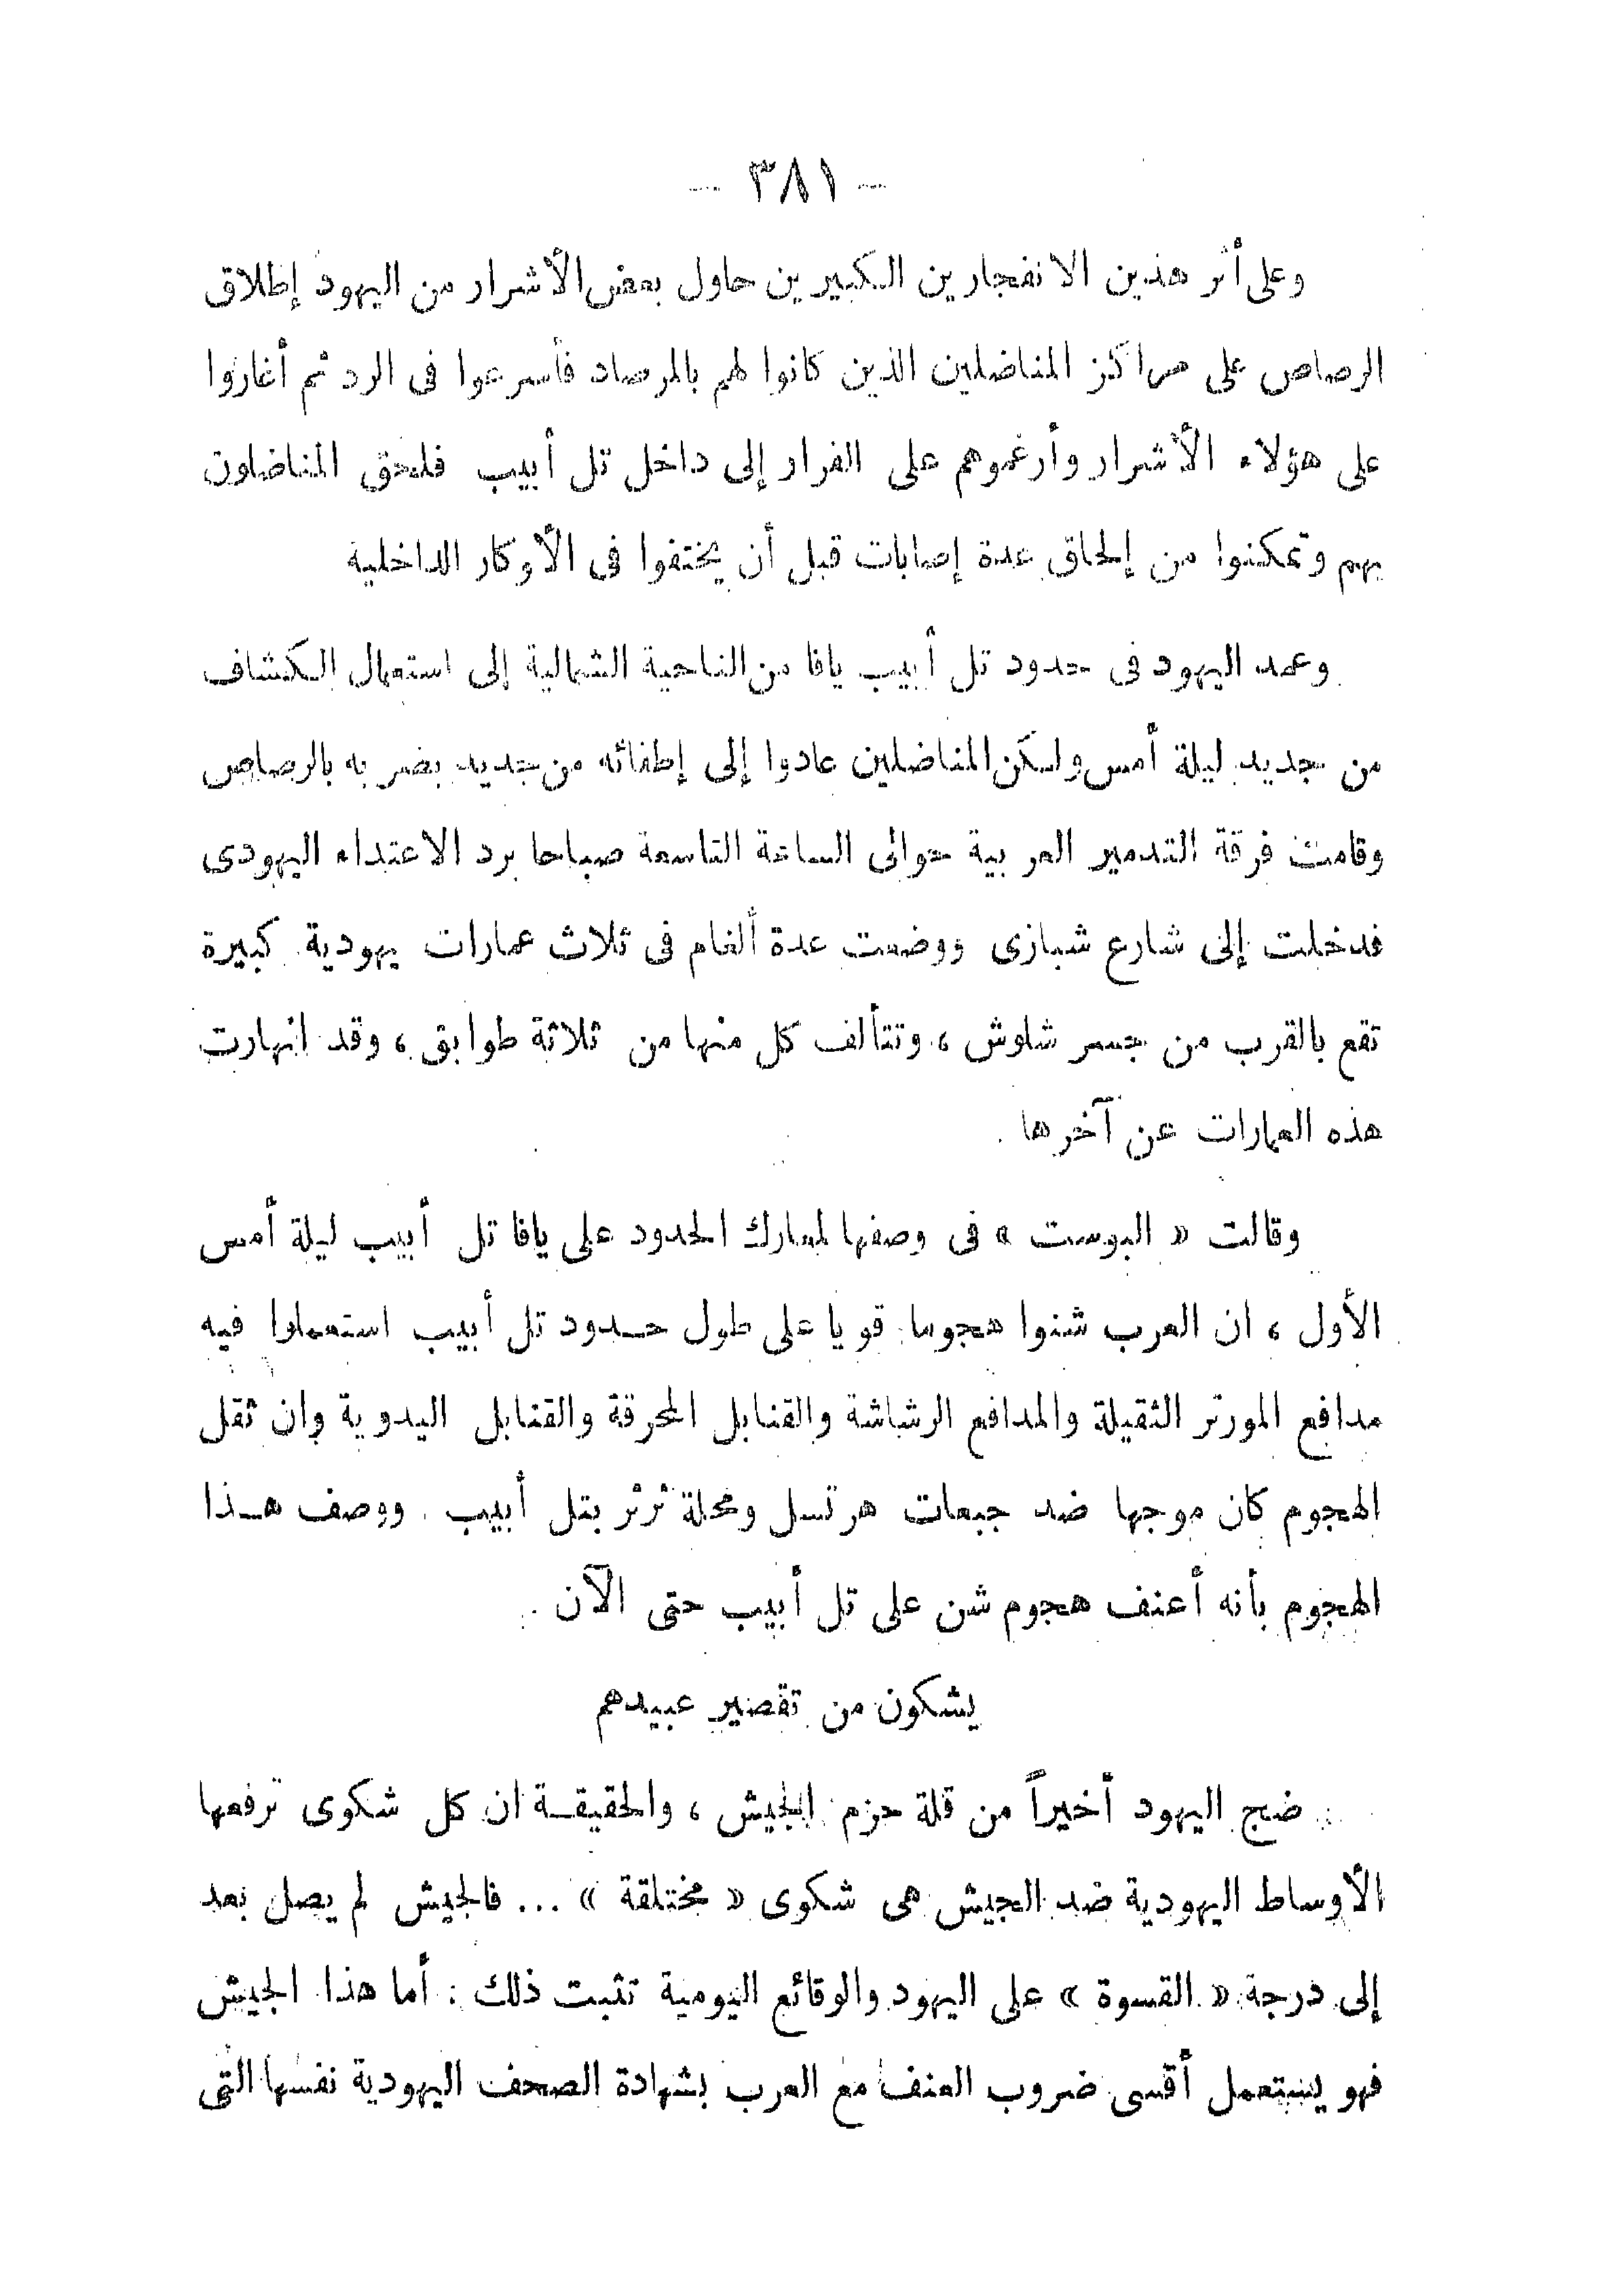 - ٣٨١ -
وعلى أثر هذين الانفجارين الكبيرين حاول بعض الأشرار من اليهود إطلاق
الرصاص على مراكز المناضلين الذين كانوا لهم بالمرصاد فأسرعوا فى الرد ثم أغاروا
على هؤلاء الأشرار وأرغموهم على الفرار إلى داخل تل أبيب فلحق المناضلون
بهم وتمكنوا من إلحاق عدة إصابات قبل أن يختفوا فى الأوكار الداخلية
وعمد اليهود فى حدود تل أبيب يافا من الناحية الشمالية إلى استعمال الكشاف
من جديد ليلة أمس ولكن المناضلين عادوا إلى إطفائه من جديد بضربه بالرصاص
وقامت فرقة التدمير العربية حوالى الساعة التاسعة صباحا برد الاعتداء اليهودى
فدخلت إلى شارع شبازى ووضعت عدة ألغام فى ثلاث عمارات يهودية كبيرة
تقع بالقرب من جسر شلوش ، وتتألف كل منها من ثلاثة طوابق ، وقد انهارت
هذه العمارات عن آخرها .
وقالت « البوست » فى وصفها لمعارك الحدود على يافا تل أبيب ليلة أمس
الأول ، ان العرب شنوا هجوما قويا على طول حدود تل أبيب استعملوا فيه
مدافع المورتر الثقيلة والمدافع الرشاشة والقنابل المحرقة والقنابل اليدوية وان ثقل
الهجوم كان موجها ضد جبعات هرتسل ومحلة ثرثر بتل أبيب . ووصف هذا
الهجوم بأنه أعنف هجوم شن على تل أبيب حتى الآن .
يشكون من تقصير عبيدهم
ضج اليهود أخيراً من قلة حزم الجيش ، والحقيقة ان كل شكوى ترفعها
الأوساط اليهودية ضد الجيش هى شكوى « مختلقة » ... فالجيش لم يصل بعد
إلى درجة « القسوة » على اليهود والوقائع اليومية تثبت ذلك : أما هذا الجيش
فهو يستعمل أقسى ضروب العنف مع العرب بشهادة الصحف اليهودية نفسها التى